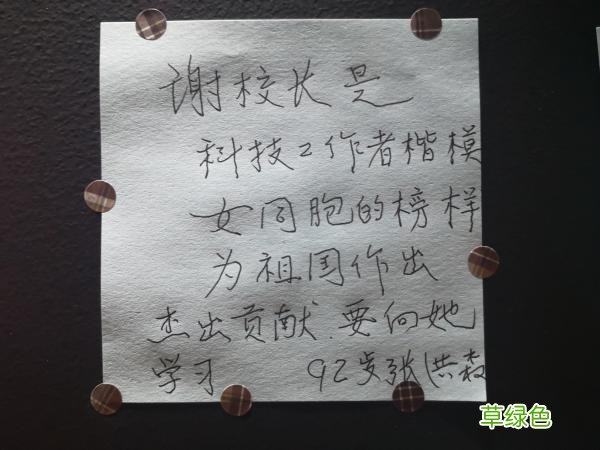 谢校长是
科技工作者楷模
女同胞的榜样
为祖国作出
杰出贡献.要向她
学习 92岁张洪森
草绿色